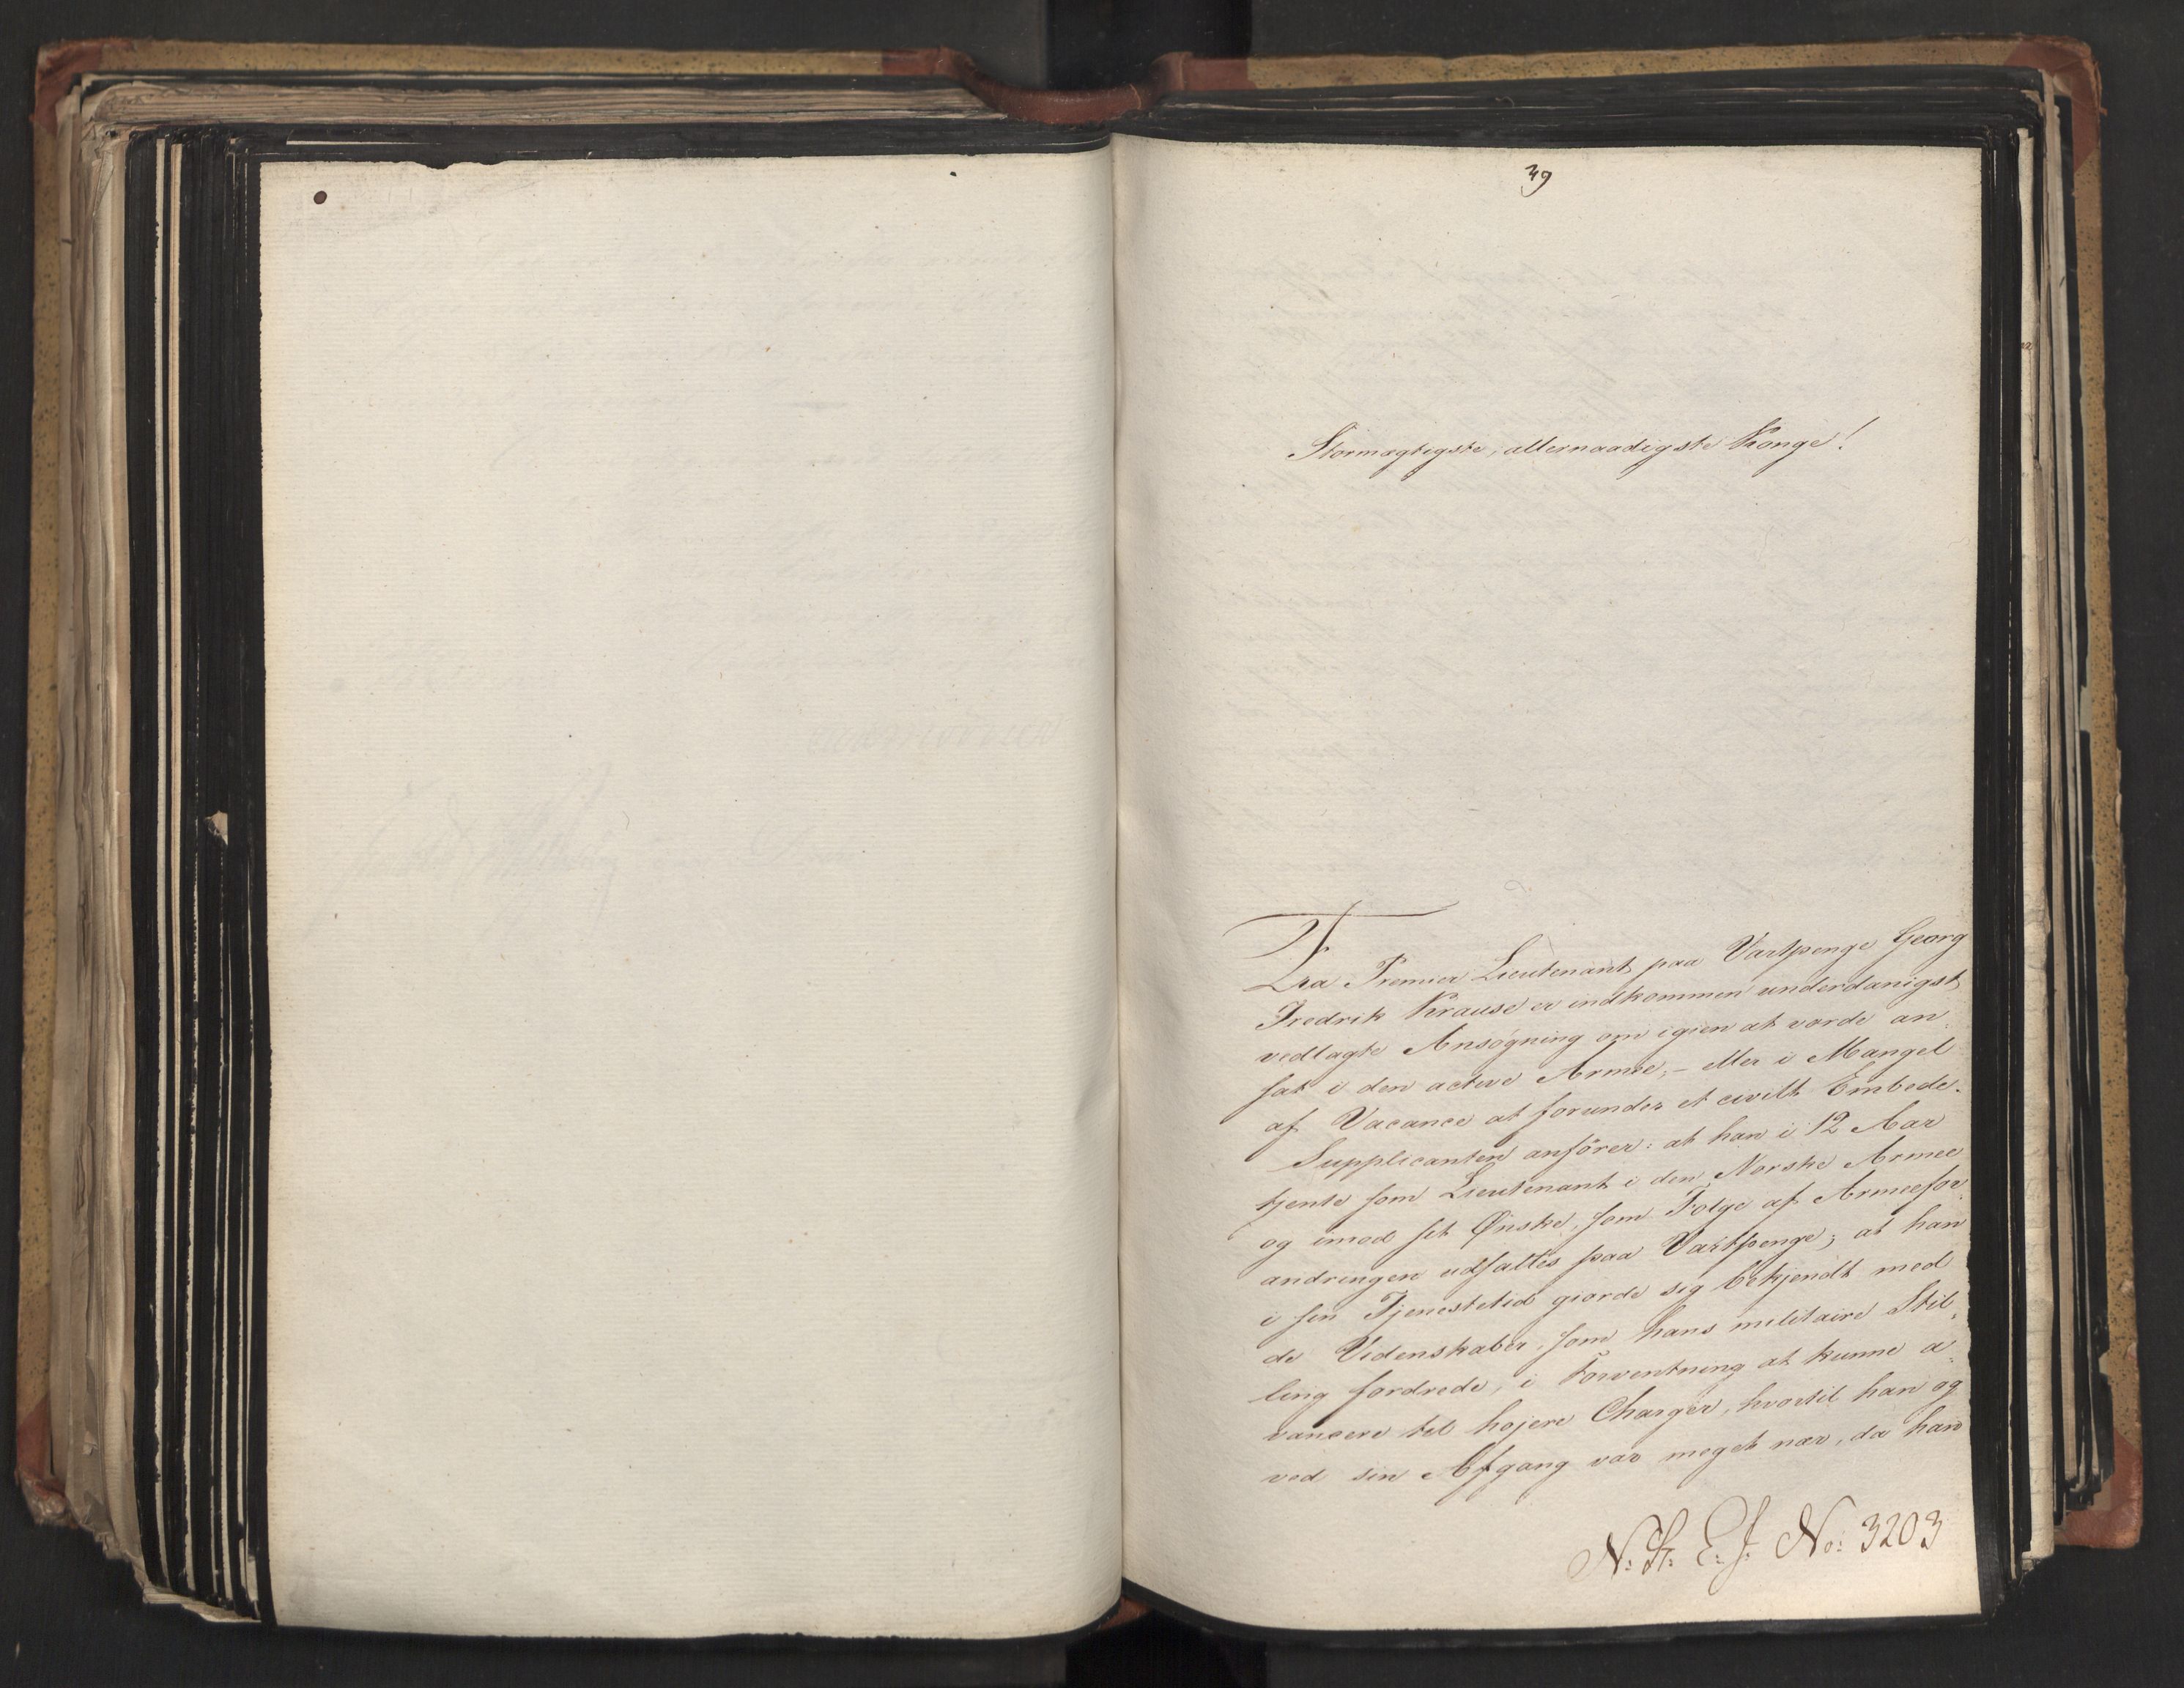 39
Stormægtigste, allernaadigste Konge!
Fra Premier Lieutenant paa Vartpenge Georg
Fredrik Krause er indkommen underdanigst
vedlagte Ansøgning om igien at vorde an-
sat i den active Armee, – eller i Mangel
af Vacance at forundes et civilt Embede.
Supplicanten anfører: at han i 12 Aar
tjente som Lieutenant i den Norske Armee
og imod sit Ønske, som Følge af Armeefor-
andringen udsattes paa Vartpenge; at han
i sin Tjenestetid giorde sig bekjendt med
de Videnskaber, som hans militaire Stil-
ling fordrede, i Forventning at kunne a-
vancere til højere Charger, hvortil han og
ved sin Afgang var meget nær, da han
N: St: E: J: No: 3203